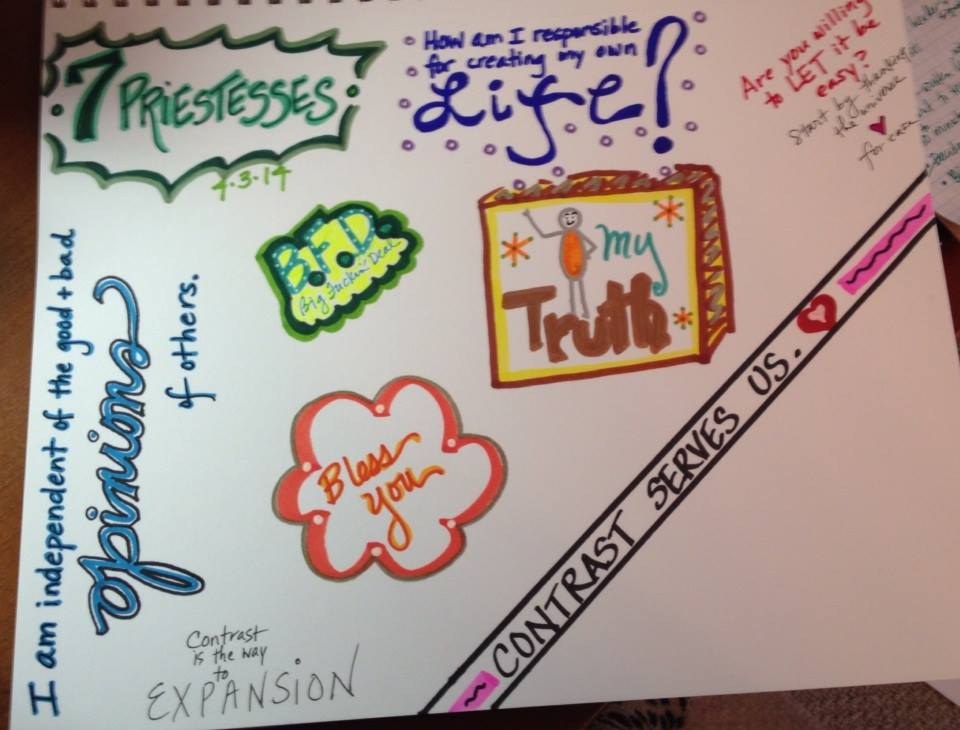 7 PRIESTESSES
4.3.14
How am I responsible
for creating my own
Life?
Are you willing
to LET it be
easy?
Start by thanking
the universe
for ease
B.F.D.
Big Fuckin' Deal
my
Truth
I am independent of the good + bad
opinions
of others.
Bless
you
CONTRAST SERVES US.
Contrast
is the way
to
EXPANSION